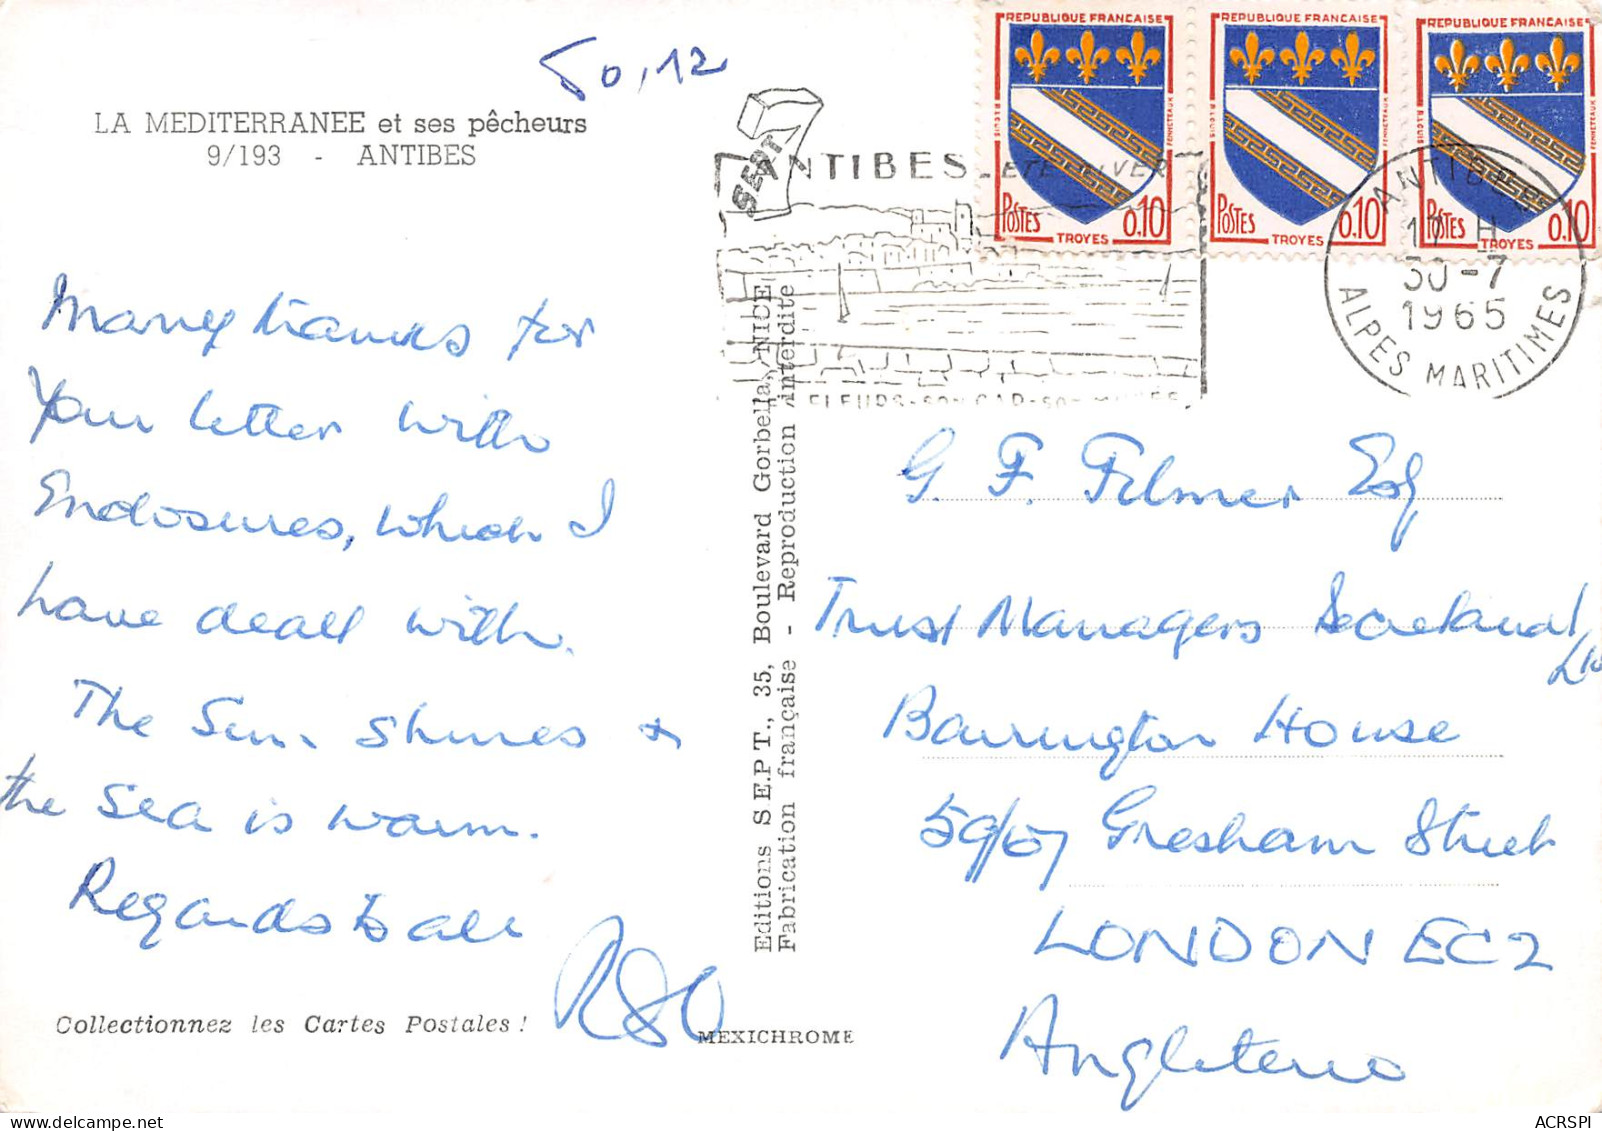 50,12
LA MEDITERRANEE et ses pêcheurs
9/193 - ANTIBES
Many thanks for
Your letter with
Enclosures, which I
have dealt with.
The Sun shines &
the sea is warm.
Regards to all
Collectionnez les Cartes Postales !
MEXICHROME
Editions S E.P T., 35, Boulevard Gorbella, NICE
Fabrication française - Reproduction interdite
SEPT
ANTIBES - ETE HIVER
FLEURS - SON CAP - SON
REPUBLIQUE FRANÇAISE
POSTES 0,10
TROYES
REPUBLIQUE FRANÇAISE
POSTES 0,10
TROYES
REPUBLIQUE FRANÇAISE
POSTES 0,10
TROYES
ANTIBES
17 H
30-7
1965
ALPES MARITIMES
G. F. Filmer Esq
Trust Managers Secretarial
Barrington House
59/67 Gresham Street
LONDON EC2
Angleterre
ACRSPI